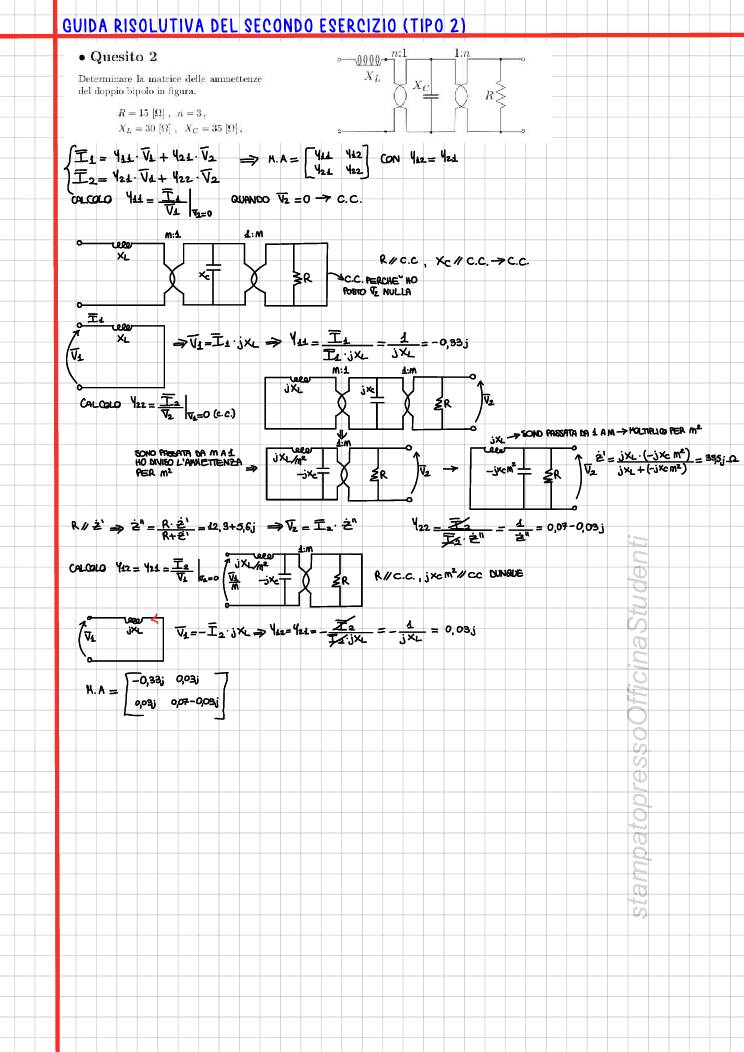 GUIDA RISOLUTIVA DEL SECONDO ESERCIZIO (TIPO 2)
• Quesito 2
Determinare la matrice delle ammettenze
del doppio bipolo in figura.
R = 15 [Ω] , n = 3 ,
X_L = 30 [Ω] , X_C = 35 [Ω] ,
n:1 1:n
X_L X_C R
I̅1 = Y11·V̅1 + Y21·V̅2
I̅2 = Y21·V̅1 + Y22·V̅2
⇒ M.A = [Y11 Y12
Y21 Y22] CON Y12 = Y21
CALCOLO Y11 = I̅1/V̅1 |V̅2=0 QUANDO V̅2 = 0 → C.C.
m:1 1:m
XL XC R
R // C.C , XC // C.C. → C.C.
C.C. PERCHE' HO
POSTO V̅2 NULLA
I̅1
XL
V̅1
⇒ V̅1 = I̅1·jXL ⇒ Y11 = I̅1/(I̅1·jXL) = 1/(jXL) = -0,33j
CALCOLO Y22 = I̅2/V̅2 |V̅1=0 (C.C.)
m:1 1:m
jXL jXC R V̅2
SONO PASSATA DA m A 1
HO DIVISO L'AMMETTENZA
PER m² ⇒
1:m
jXL/m² -jXC R V̅2
jXL → SONO PASSATA DA 1 A m → MOLTIPLICO PER m²
-jXCm² R V̅2
Ż' = jXL·(-jXCm²)/(jXL+(-jXCm²)) = 33,5j Ω
R // Ż' ⇒ Ż" = R·Ż'/(R+Ż') = 12,3+5,6j ⇒ V̅2 = I̅2·Ż" Y22 = I̅2/(I̅2·Ż") = 1/Ż" = 0,07-0,03j
CALCOLO Y12 = Y21 = I̅2/V̅1 |V̅2=0
1:m
jXL/m² V̅1/m -jXC R
R // C.C., jXCm² // CC DUNQUE
V̅1 jXL
V̅1 = -I̅2·jXL ⇒ Y12 = Y21 = -I̅2/(I̅2·jXL) = -1/(jXL) = 0,03j
M.A = [-0,33j 0,03j
0,03j 0,07-0,03j]
stampatopressoOfficinaStudenti